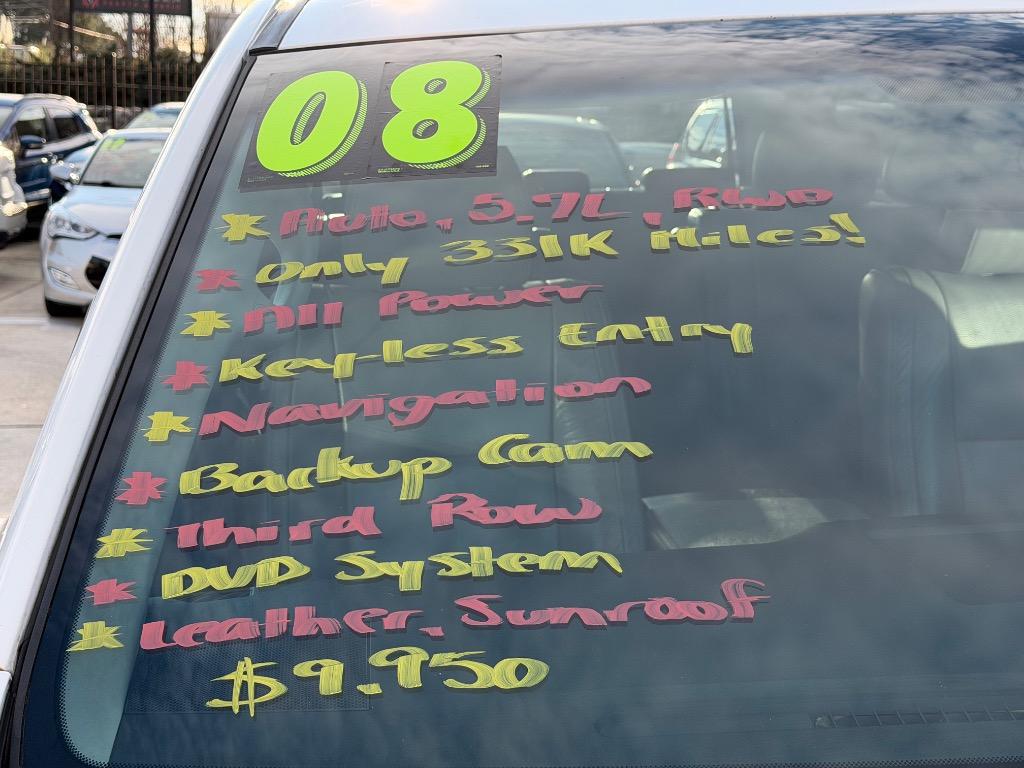 08
* Auto, 5.7L, RWD
* Only 331K Miles!
* All Power
* Keyless Entry
* Navigation
* Backup Cam
* Third Row
* DVD System
* Leather, Sunroof
$9,950